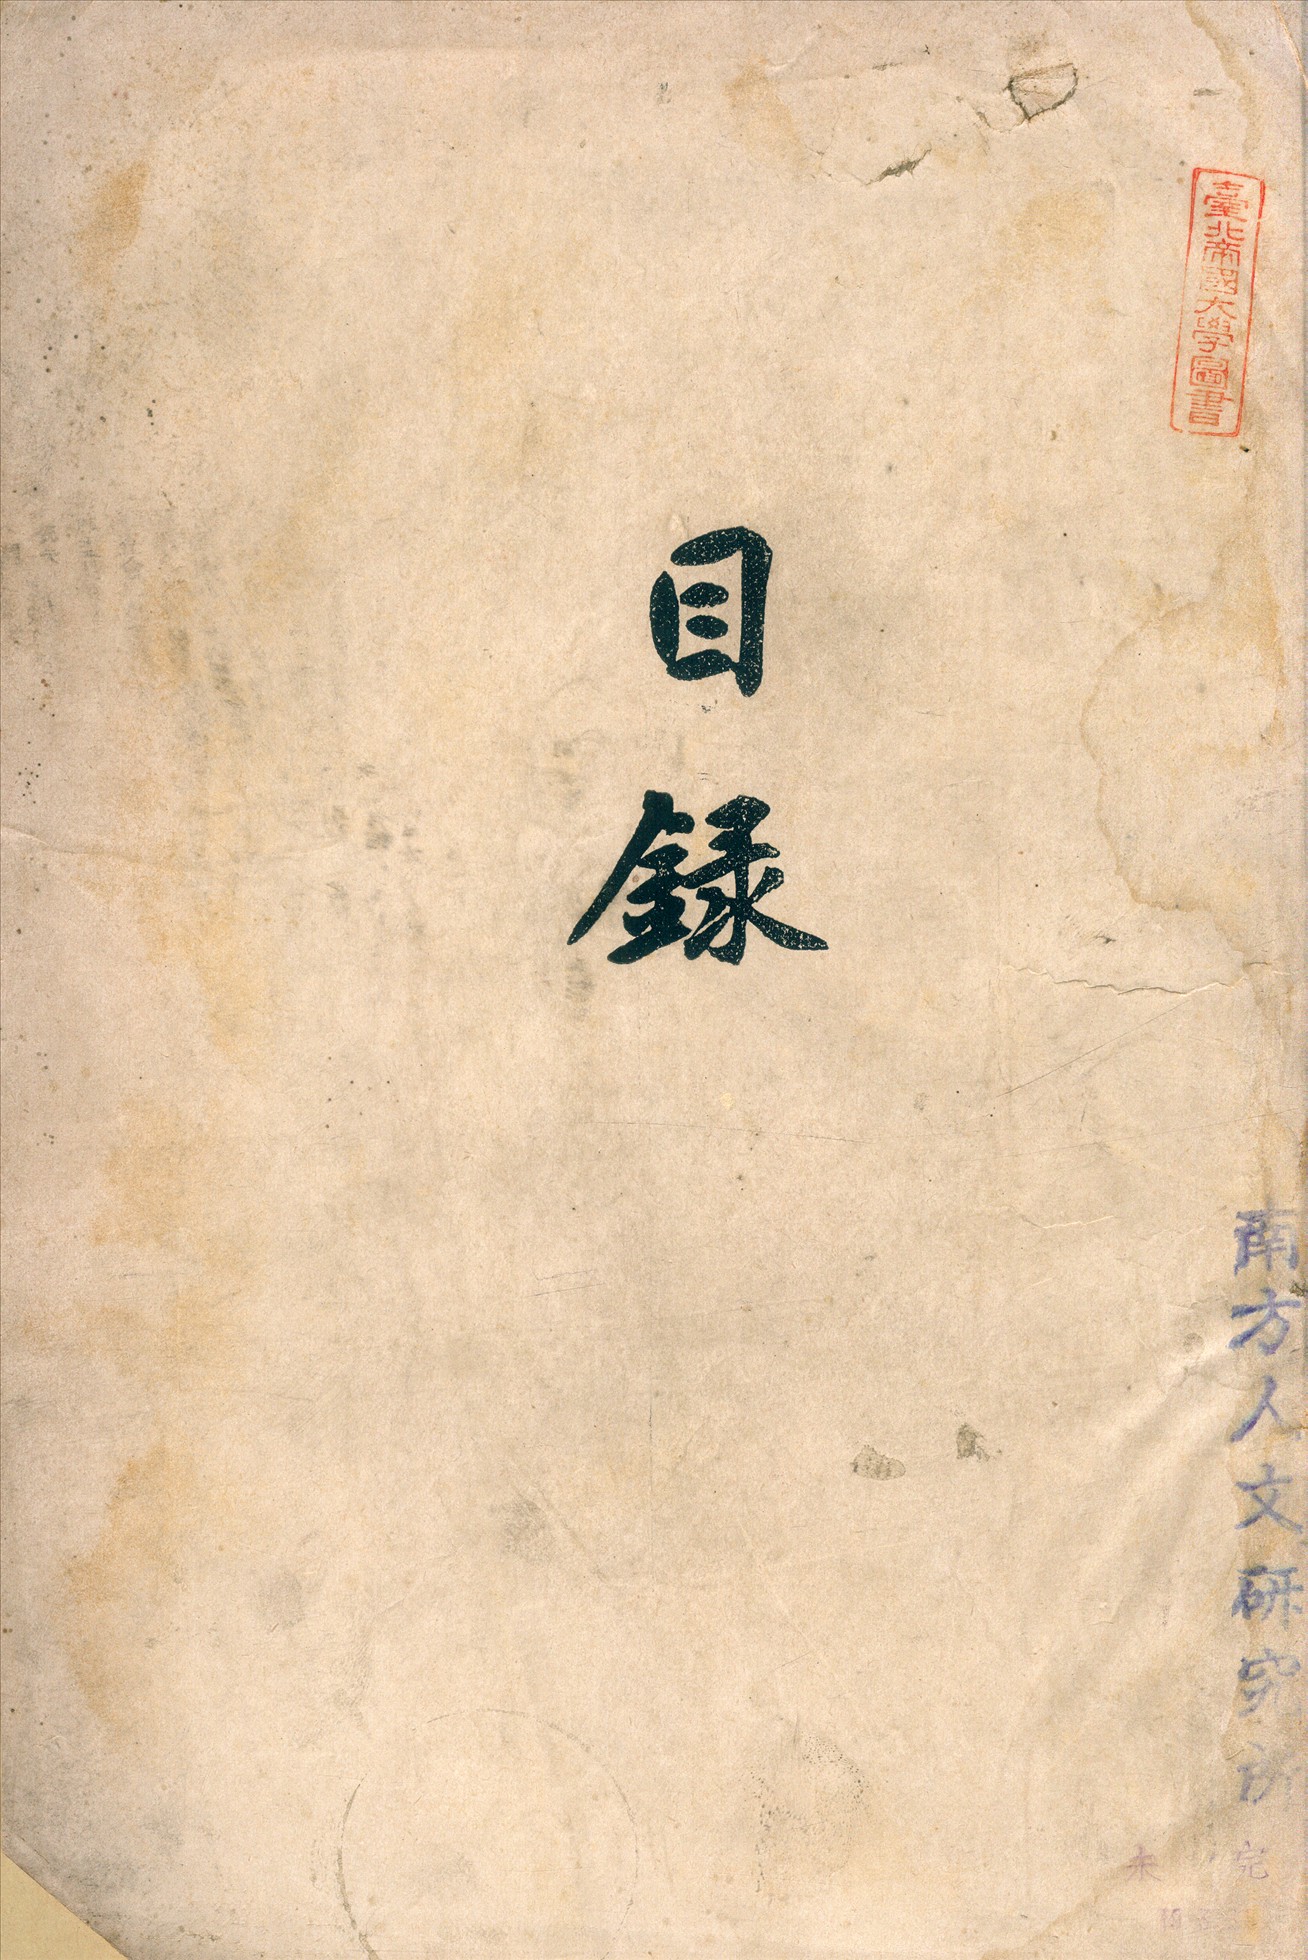 臺北帝國大學圖書
目錄
南方人文研究所
未完